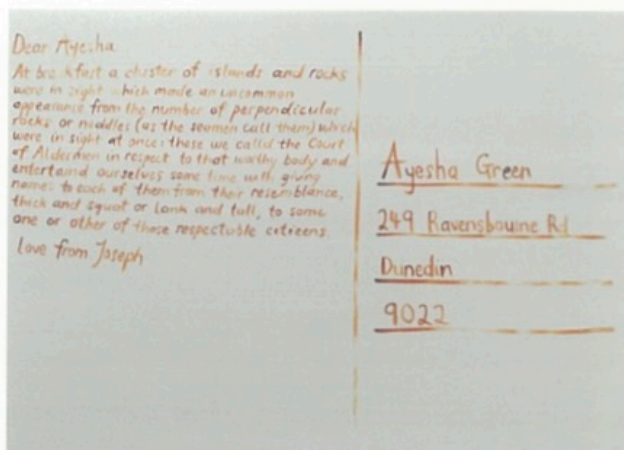 Dear Ayesha
At breakfast a cluster of islands and rocks
were in sight which made an uncommon
appearance from the number of perpendicular
rocks or neddles (as the seamen call them) which
were in sight at once: these we calld the Court
of Aldermen in respect to that worthy body and
entertaind ourselves some time with giving
names to each of them from their resemblance,
thick and squat or lank and tall, to some
one or other of those respectable citizens
love from Joseph
Ayesha Green
249 Ravensbourne Rd
Dunedin
9022